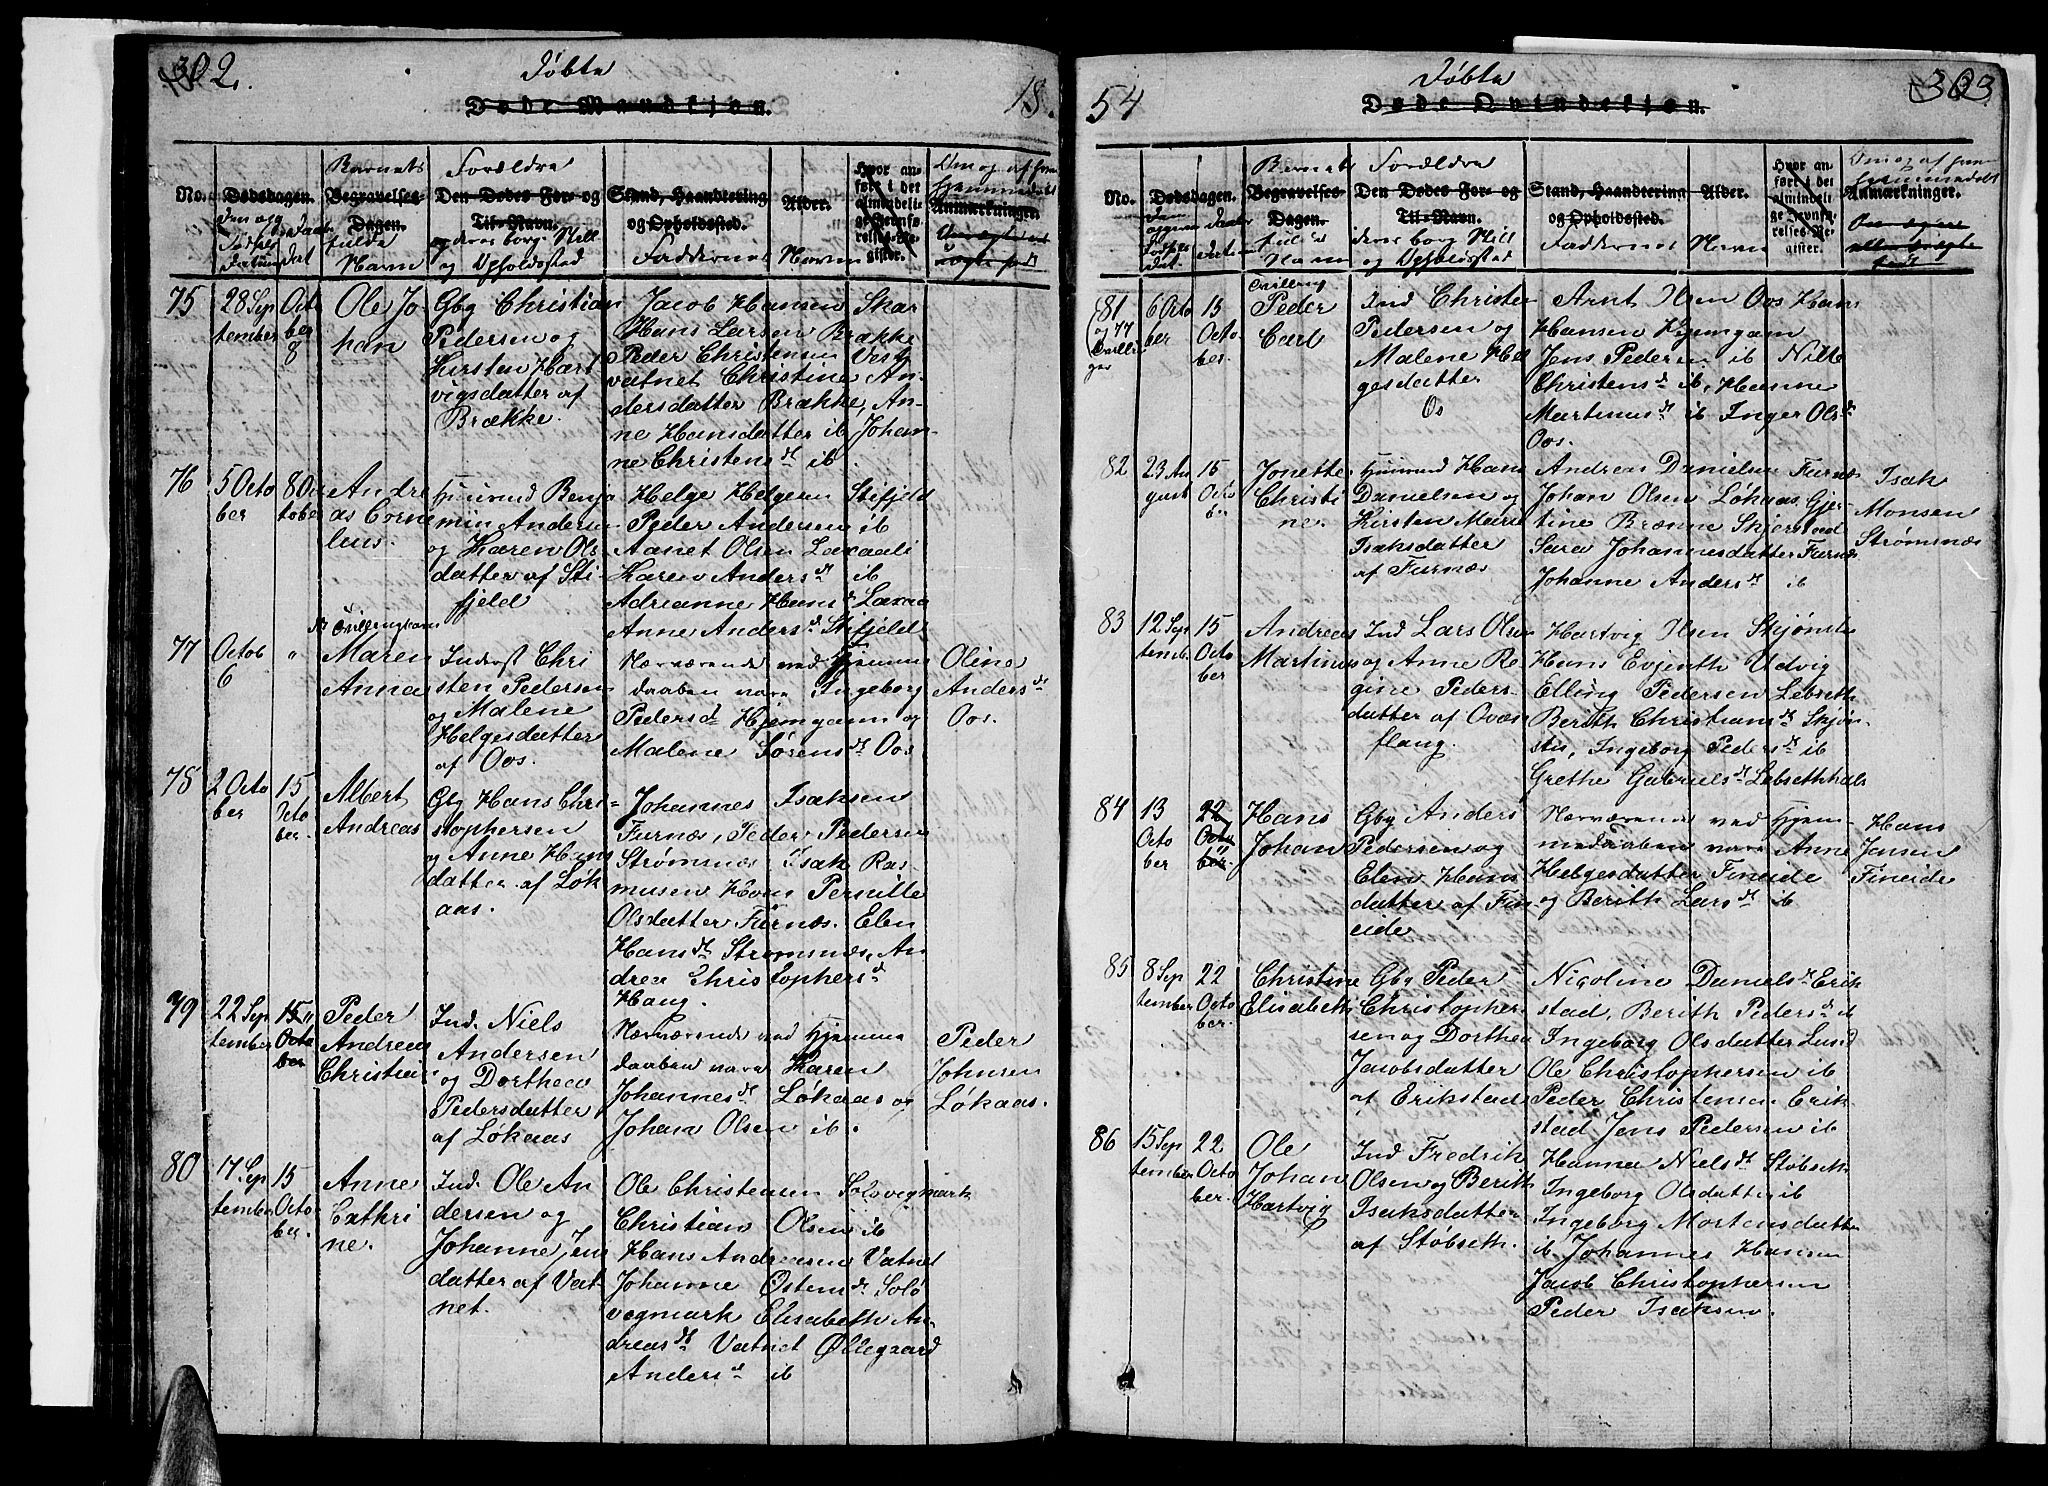 302.
Døbte
Døde Mandkjøn.
18
No.
Dødsdagen.
Barnets
Begravelses-
Dagen.
fulde
Navn
Forældre
Den Dødes For- og
Til-Navn.
og deres borg. Still
og Opholdssted
Stand, Haandtering
og Opholdsted.
Faddernes
Alder.
Navn
Hvor an-
ført i det
almindeli-
ge Jevnfø-
relses-Re-
gister.
Om og af hvem
hjemmedøbt
Anmærkninger.
75
28 Sep
tember
Octo
ber
8
Ole Jo
han
Gbg Christian
Pedersen og
Kirsten Hart
vigsdatter af
Brække.
Jacob Hansen Skar
Hans Larsen Brække
Peder Christensen Vest
vatnet Christine An-
dersdatter Brække, An-
ne Hansdatter ib Johan-
ne Christensdt ib.
76
5 Octo
ber
8 Oc
tober
Andre
as Corne
lius.
Huusmd Benja
min Andersen
og Karen Ols
datter af Sti-
fjeld
Helge Helgesen Stifjeld
Peder Andersen ib
Aanet Olsen Laxaali
Karen Andersdt ib
Adrianne Hansdt Laxaa
Anne Andersd Stifjeld
77
Octob
6
"
Tvillingbarn
Maren
Anna
Inderst Chri
sten Pedersen
og Malene
Helgesdatter
af Oos.
Nærværende ved Hjemme
daaben vare Ingeborg
Pedersdt Hjemgam og
Malene Sørensdt Oos
Oline
Andersdt
Oos.
78
2 Octo
ber
15
Octo
ber.
Albert
Andreas
Gbg Hans Chri-
stophersen
og Anne Hans
datter af Løk
aas.
Johannes Isaksen
Furnæs, Peder Pedersen
Strømnæs Isak Ras-
musen Hvm Pernille
Olsdatter Furnæs. Elen
Hansdt Strømsnæs, An
drea Christophersd
Haug.
79
22 Sep
tember
15 "
Octo
ber
Peder
Andreas
Christian
Ind. Niels
Andersen
og Dorthea
Pedersdatter
af Løkaas
Nærværende ved Hjemme
daaben vare Karen
Johannesdt Løkaas og
Johan Olsen ib.
Peder
Johnsen
Løkaas.
80
17 Sep
tember
15
Octo
ber.
Anne
Cathri
ne.
Ind. Ole An
dersen og
Johanne Jens
datter af Vat
net.
Ole Christensen Solovegmark
Christian Olsen ib
Hans Andreasen Vatnet
Johanne Ostensdt Solo
vegmark Elisabeth An-
dreasdt Vatnet Øllegaard
Andersdt ib
54
Døbte
Døde Qvindekjøn.
303
No.
Dødsdagen.
Barnets
Begravelses-
Dagen.
fulde
Navn
Forældre
Den Dødes For- og
Til-Navn.
deres borg Still
og Opholdssted
Stand, Haandtering
og Opholdsted.
Faddernes
Alder.
Navn
Hvor an-
ført i det
almindeli-
ge Jevnfø-
relses-Re-
gister.
Om og af hvem
hjemmedøbt
Anmærkninger.
81
og 77
Tvillin
ger
6 Octo
ber
15
Octo
ber.
Tvilling
Peder
Carl
Ind Christen
Pedersen og
Malene Hel
gesdatter
Os
Arnt Olsen Oos Hans
Hansen Hjemgam
Jens Pedersen ib Nille
Christensd ib, Hanne
Martinusdt ib Inger Olsdt
Oos.
82
23 Au
gust
15
Octo
ber
Jonette
Christi
ne.
Huusmd Hans
Danielsen og
Kirsten Marie
Isaksdatter
af Furnæs
Andreas Danielsen Furnæs
Johan Olsen Løkaas, Gjer
tine Brænne Skjerstad
Sara Johannesdatter Furnæs
Johanne Andersdt ib
Isak
Monsen
Strømsnæs
83
12 Sep
temb.
15
Octo
ber
Andreas
Martinus
Ind Lars Olsen
og Anne Re
gine Peders-
datter af Qvæs
flaug.
Hartvig Olsen Skjønsta
Hans Evjenth Udvig
Elling Pedersen Lebseth
Berith Christiansdt Skjøn-
sta, Ingeborg Pedersdt ib
Grethe Gabrielsdt Lebsethhals
84
13
Octo
ber
22
Octo
ber.
Hans
Johan
Gbg Anders
Pedersen og
Elen Hans
datter af Fin
eide
Nærværende ved Hjem-
medaaben vare Anne
Helgesdatter Fineide
og Berith Larsdt ib
Hans
Jensen
Fineide
85
8 Sep
tember
22
Octo
ber.
Christine
Elisabeth
Gbg Peder
Christopher
sen og Dorthea
Jacobsdatter
af Erikstad
Nicoline Danielsdt Erik
stad, Berith Pedersd ib
Ingeborg Olsdatter Lund
Ole Christophersen ib
Peder Christensen Erik-
stad Jens Pedersen ib
86
15 Sep
tember
22
Octo
ber.
Ole
Johan
Hartvig
Ind Fredrik
Olsen og Berith
Isaksdatter
af Støbseth.
Hanna Nielsdt Støbseth
Ingeborg Olsdatter ib
Ingeborg Mortensdatter
ib Johannes Hansen
Jacob Christophersen
Peder Isaksen.